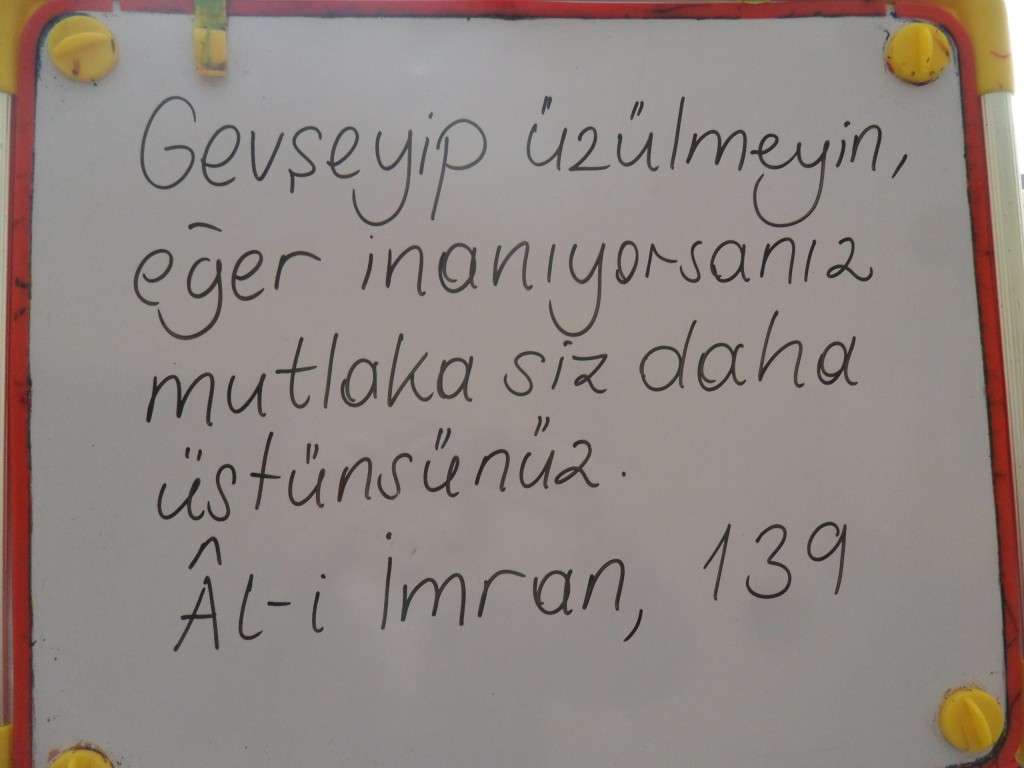 Gevşeyip üzülmeyin,
eğer inanıyorsanız
mutlaka siz daha
üstünsünüz.
Âl-i İmran, 139